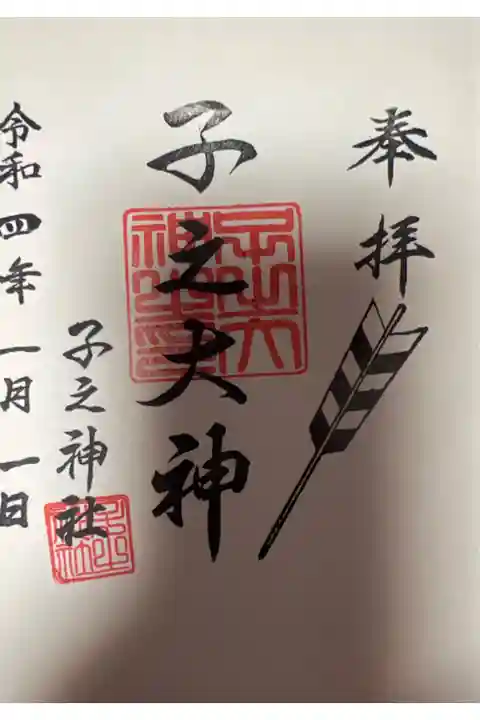 奉拝
子之大神
子之神社
令和四年一月一日